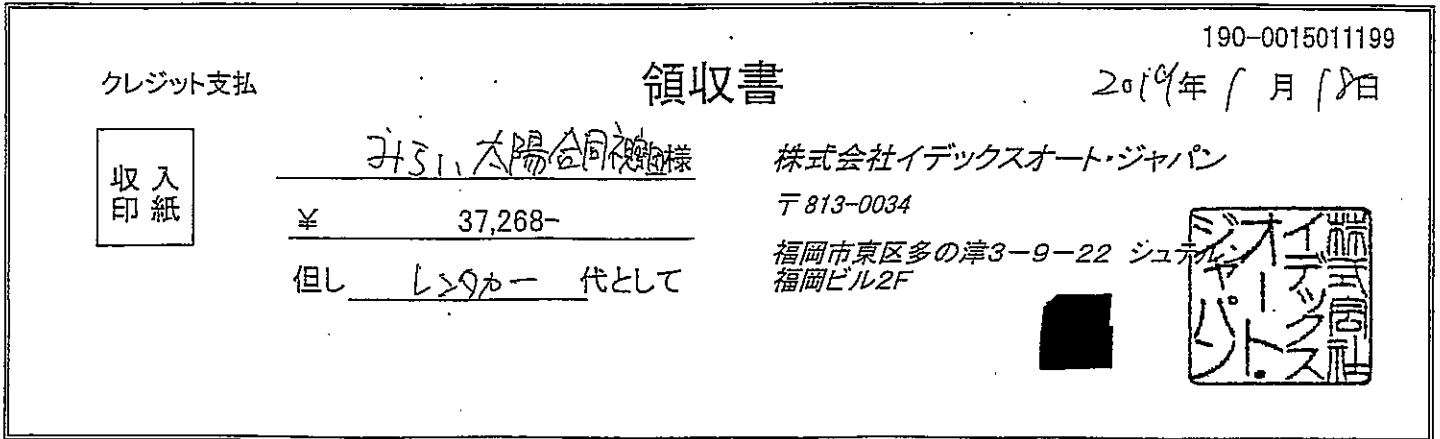 190-0015011199
クレジット支払
領収書
2019年1月18日
収入
印紙
みらい、太陽合同視察団様
¥ 37,268-
但し レンタカー 代として
株式会社イデックスオート・ジャパン
〒813-0034
福岡市東区多の津3-9-22 ジュテル
福岡ビル2F
株式会社
イデックス
オート・
ジャパン